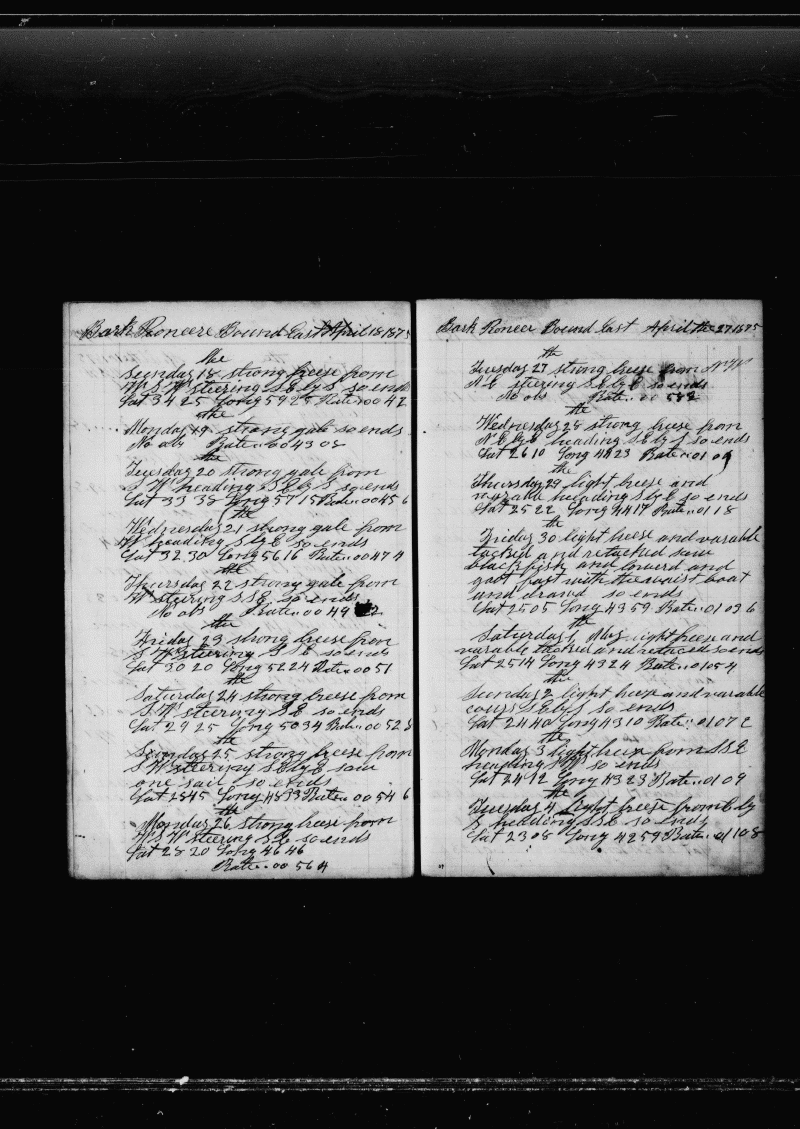 Bark Pioneere Bound East April 18 1875
the
Seunday 18 strong breese from
W S W steering S E by S so ends
Lat 34 25 Long 59 25 Rate .. 00 42
the
Monday 19 strong gale so ends
No obs Rate .. 00 43 08
the
Tuesday 20 strong gale from
S W heading S E by S so ends
Lat 33 38 Long 57 15 Rate .. 00 45 6
the
Wednesday 21 strong gale from
W heading S by E so ends
Lat 32 30 Long 56 16 Rate .. 00 47 4
the
Thursday 22 strong gale from
W steering S S E so ends
No obs Rate .. 00 49
the
Friday 23 strong breese from
S W steering S E so ends
Lat 30 20 Long 52 24 Rate .. 00 51
the
Saturday 24 strong breese from
S W steering S E so ends
Lat 29 25 Long 50 34 Rate .. 00 52
the
Seunday 25 strong breese from
S W steering S E by E saw
one sail so ends
Lat 28 45 Long 48 33 Rate .. 00 54 6
the
Monday 26 strong breese from
W S W steering S E so ends
Lat 28 20 Long 46 46
Rate .. 00 56 4
Bark Pioneer Bound East April the 27 1875
the
Tuesday 27 strong breese from N W
N E steering S E by E so ends
No obs Rate .. 00 58 2
the
Wednesday 28 strong breese from
N E by E heading S E by S so ends
Lat 26 10 Long 44 23 Rate .. 01 0
the
Thursday 29 light breese and
varable heading S by E so ends
Lat 25 22 Long 44 17 Rate .. 01 18
the
Friday 30 light breese and varable
tacked and retacked saw
blackfish and lowerd and
goot fast with the waist boat
and drawd so ends
Lat 25 05 Long 43 59 Rate .. 01 03 6
the
Saturday 1 May light breese and
varable tacked and retaced so ends
Lat 25 14 Long 43 24 Rate .. 01 05 4
the
Seunday 2 light breese and varable
cours S E by S so ends
Lat 24 40 Long 43 10 Rate .. 01 07 2
the
Monday 3 light breese from S S E
heading so ends
Lat 24 12 Long 43 23 Rate .. 01 09
the
Tuesday 4 light breese from E by
heading S S E so ends
Lat 23 08 Long 42 59 Rate .. 01 10 8